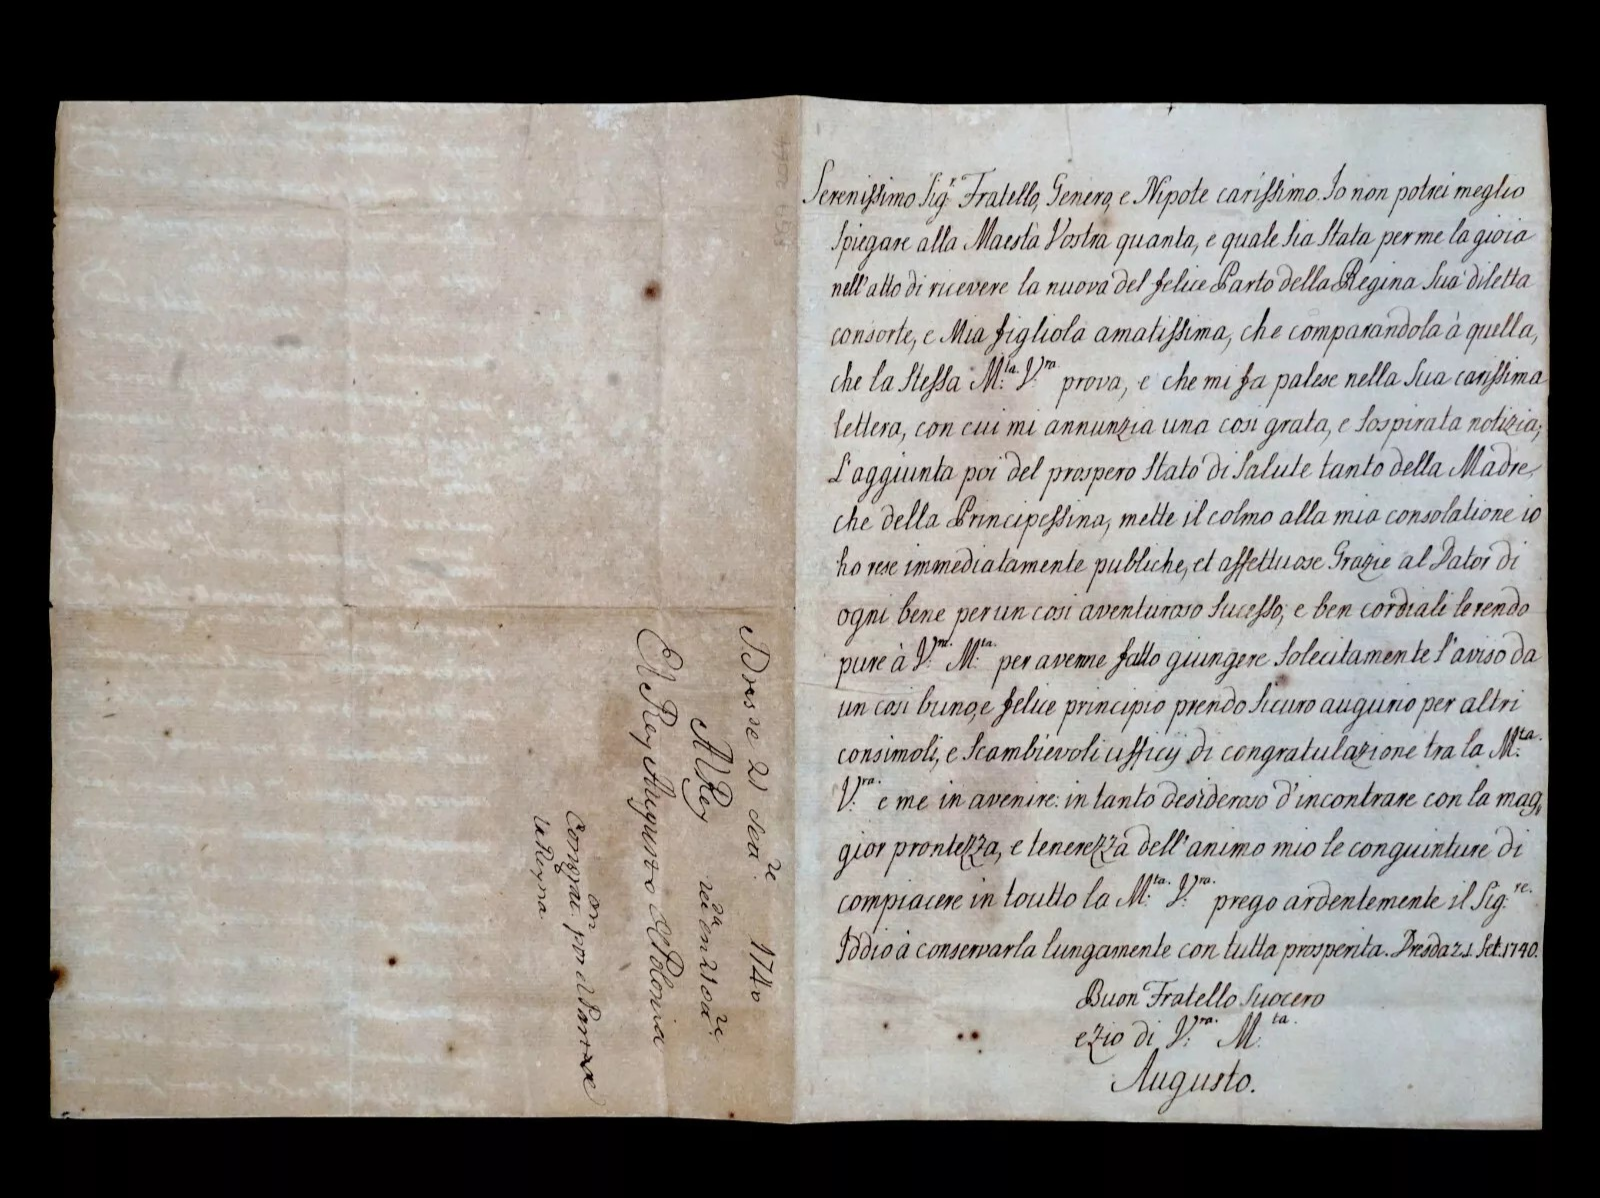 Serenissimo Sig.r Fratello, Genero, e Nipote carissimo. Io non potrei meglio
spiegare alla Maestà Vostra quanta, e quale sia stata per me la gioia
nell'atto di ricevere la nuova del felice Parto della Regina sua diletta
consorte, e Mia figliola amatissima, che comparandola à quella,
che la stessa M.ta V.ra prova, e che mi fa palese nella sua carissima
lettera, con cui mi annunzia una così grata, e sospirata notizia;
L'aggiunta poi del prospero stato di salute tanto della Madre,
che della Principessina, mette il colmo alla mia consolatione io
ho rese immediatamente publiche, et affettuose Grazie al Dator di
ogni bene per un così aventuroso sucesso; e ben cordiali le rendo
pure à V.ra M.ta per averne fatto giungere solecitamente l'aviso da
un così buno, e felice principio prendo sicuro augurio per altri
consimoli, e scambievoli ufficij di congratulazione tra la M.ta
V.ra e me in avenire: in tanto desideroso d'incontrare con la mag,
gior prontezza, e tenerezza dell'animo mio le conguinture di
compiacere in toutto la M.ta V.ra prego ardentemente il Sig.re
Iddio à conservarla lungamente con tutta prosperita. Dresda 21 Set. 1740.
Buon Fratello Suocero
e Zio di V.ra M.ta
Augusto.
Dresde 21 Sett.re 1740
Al Rey
El Rey Augusto de Polonia
Congrat.on por el Parto de
la Reyna